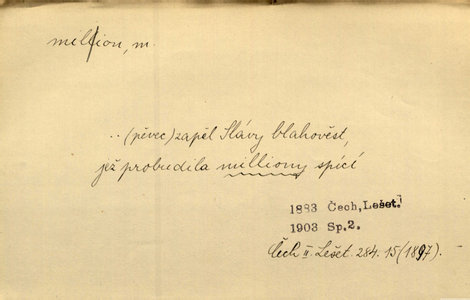 million, m.
..(pěvec) zapěl Slávy blahověst,
jež probudila milliony spící
1883 Čech, Lešet.
1903 Sp.2.
Čech II. Lešet. 284. 15 (1897).